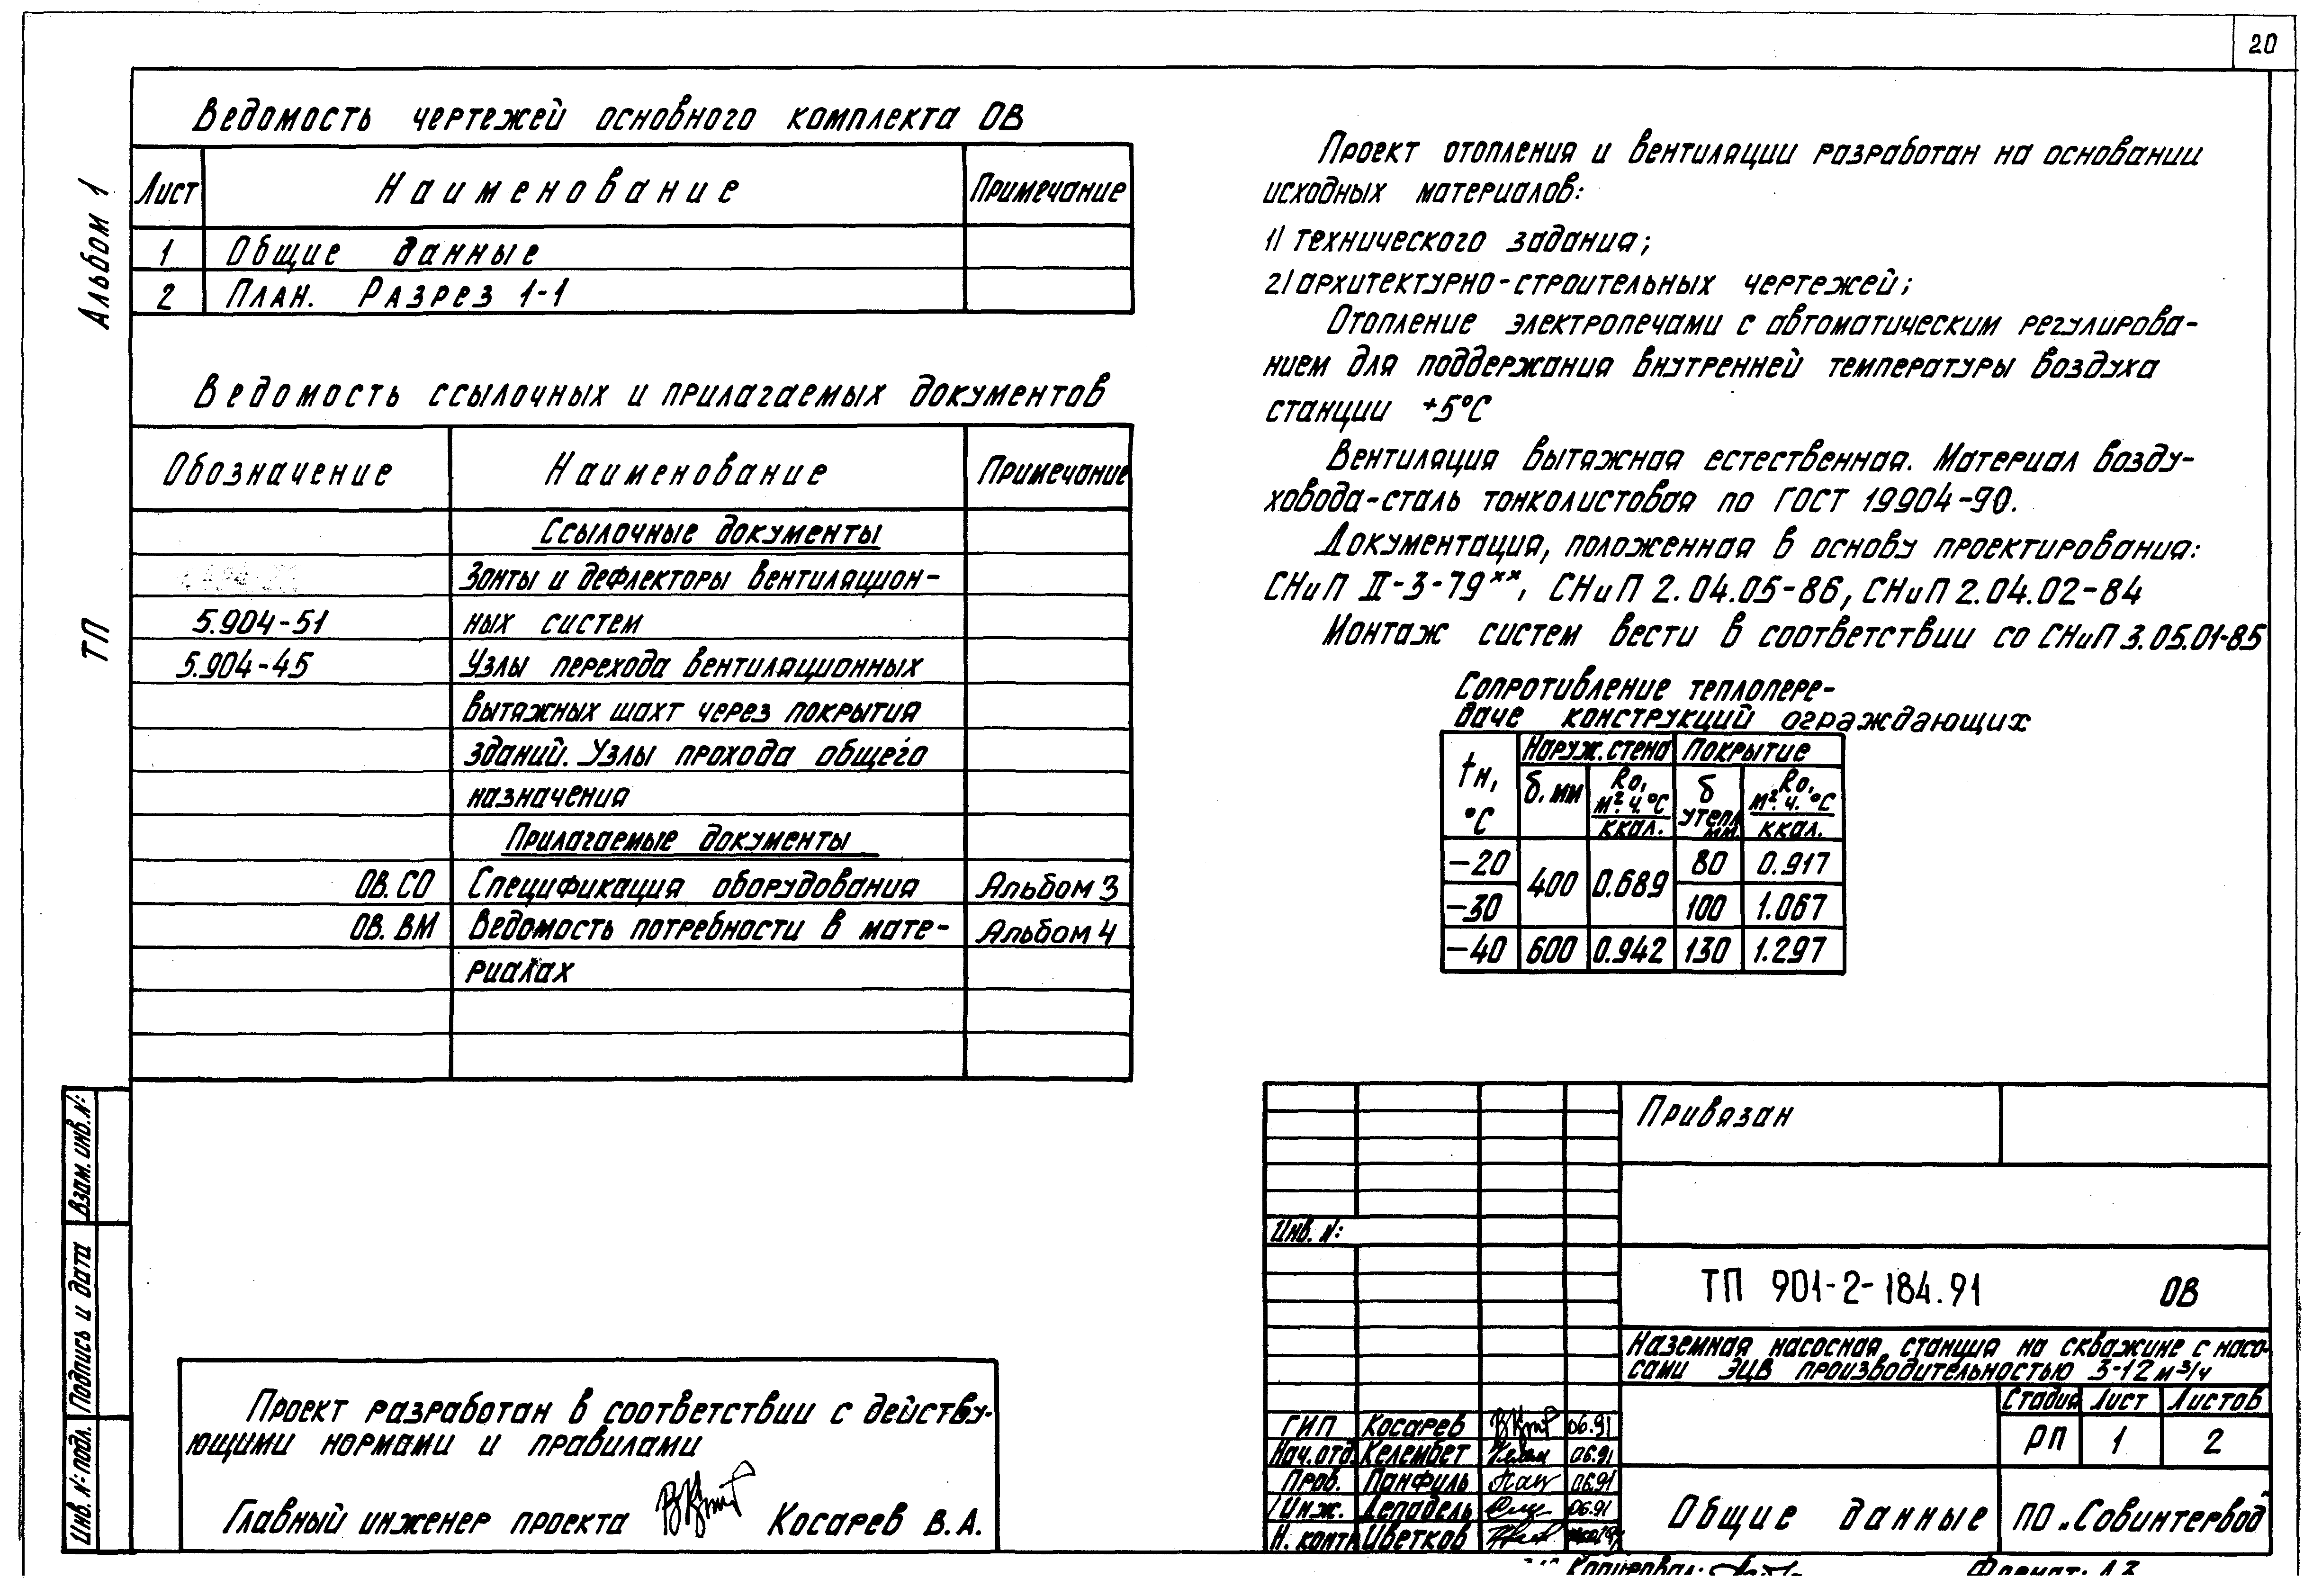 20
Альбом 1
ТП
Ведомость чертежей основного комплекта ОВ
Лист Наименование Примечание
1 Общие данные
2 План. Разрез 1-1
Ведомость ссылочных и прилагаемых документов
Обозначение Наименование Примечание
Ссылочные документы
Зонты и дефлекторы вентиляцион-
5.904-51 ных систем
5.904-45 Узлы перехода вентиляционных
вытяжных шахт через покрытия
зданий. Узлы прохода общего
назначения
Прилагаемые документы
ОВ.СО Спецификация оборудования Альбом 3
ОВ. ВМ Ведомость потребности в мате- Альбом 4
риалах
Проект отопления и вентиляции разработан на основании
исходных материалов:
1) технического задания;
2) архитектурно-строительных чертежей;
Отопление электропечами с автоматическим регулирова-
нием для поддержания внутренней температуры воздуха
станции +5°С
Вентиляция вытяжная естественная. Материал возду-
ховода-сталь тонколистовая по ГОСТ 19904-90.
Документация, положенная в основу проектирования:
СНиП II-3-79**, СНиП 2.04.05-86, СНиП 2.04.02-84
Монтаж систем вести в соответствии со СНиП 3.05.01-85
Сопротивление теплопере-
даче конструкций ограждающих
tн, °С Наруж. стена Покрытие
б. мм Rо, м².ч.°С ккал. б утепл. мм. Rо, м².ч.°С ккал.
-20 400 0.689 80 0.917
-30 100 1.067
-40 600 0.942 130 1.297
Взам. инв. №:
Подпись и дата
Инв. №: подл.
Проект разработан в соответствии с действу-
ющими нормами и правилами
Главный инженер проекта Косарев В.А.
Привязан
Инв. №:
ТП 901-2-184.91 ОВ
Наземная насосная станция на скважине с насо-
сами ЭЦВ производительностью 3-12 м³/ч
Стадия Лист Листов
РП 1 2
ГИП Косарев 06.91
Нач.отд. Келембет 06.91
Пров. Панфиль 06.91
Инж. Депадель 06.91
Н. контр Цветков
Общие данные
ПО „Совинтервод"
Копировал: Формат: А3